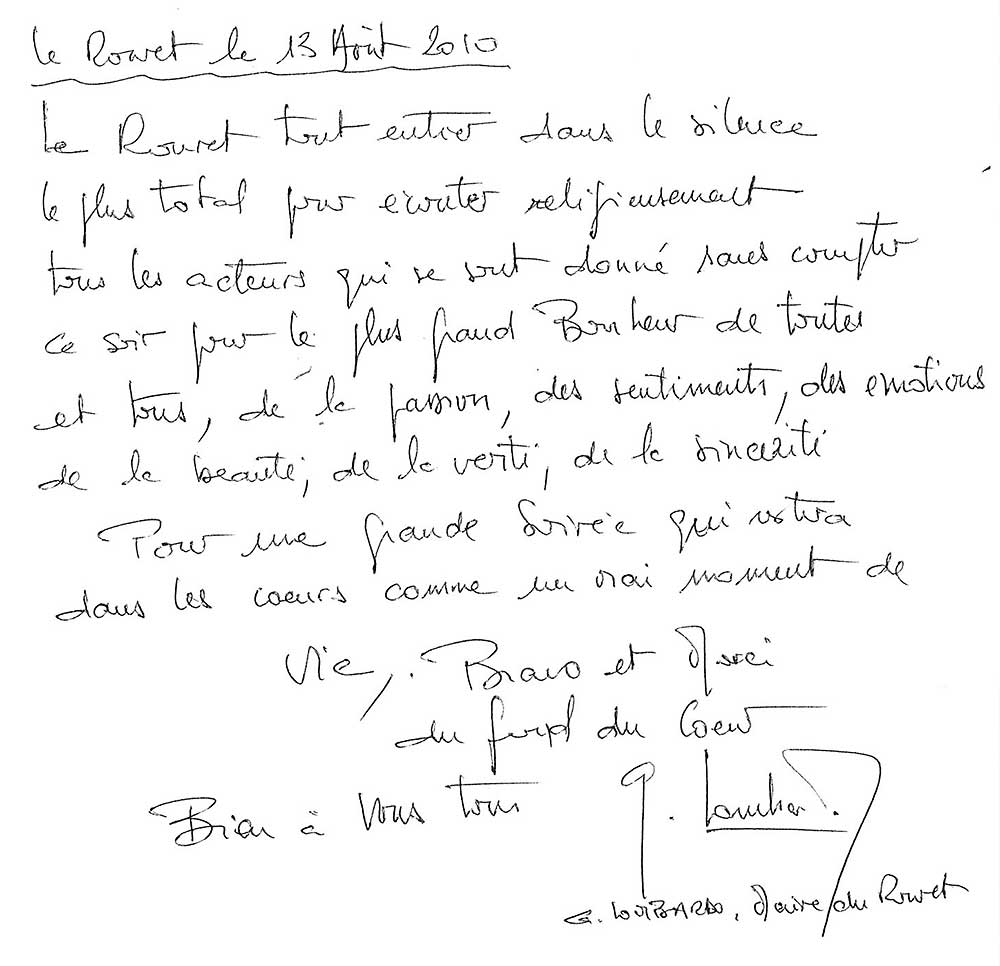 Le Rouret le 13 Août 2010
Le Rouret tout entier dans le silence
le plus total pour écouter religieusement
tous les acteurs qui se sont donné sans compter
ce soir pour le plus grand Bonheur de toutes
et tous, de la passion, des sentiments, des emotions
de la beauté, de la verité, de la sincérité
Pour une grande Soirée qui restera
dans les coeurs comme un vrai moment de
Vie, Bravo et Merci
du fond du Coeur
Bien à Vous tous
G. Lombardo
G. LOMBARDO, Maire du Rouret